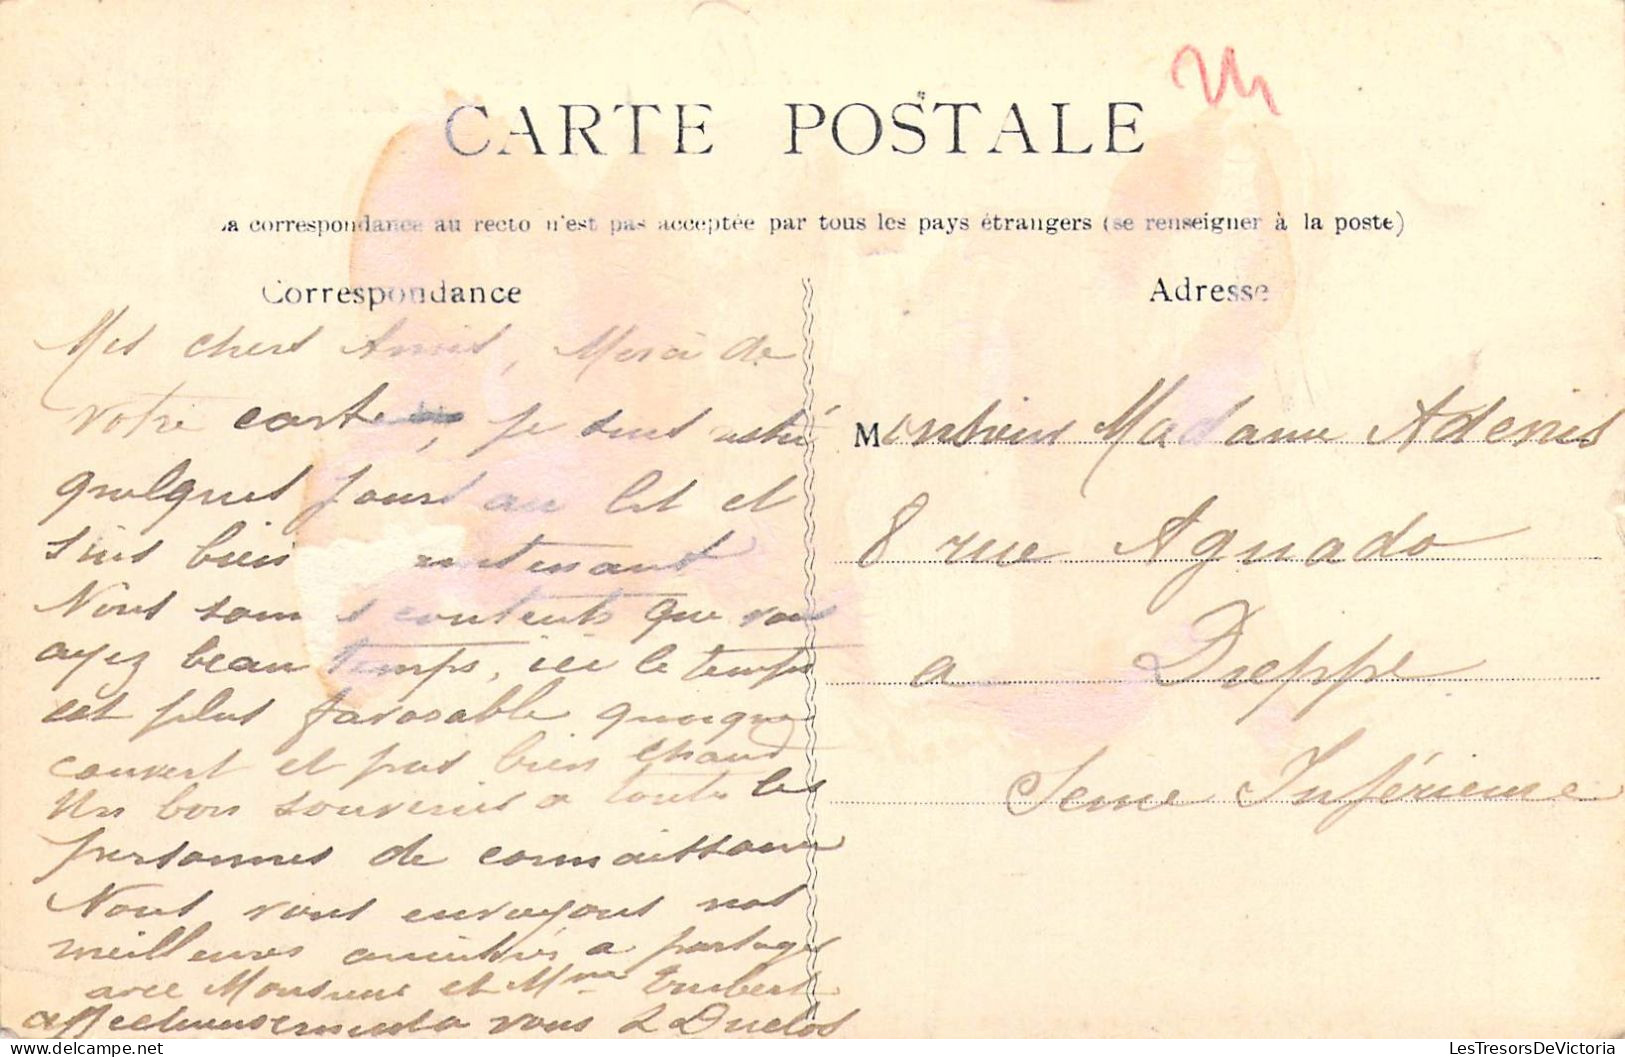 CARTE POSTALE
La correspondance au recto n'est pas acceptée par tous les pays étrangers (se renseigner à la poste)
Correspondance
Adresse
Mes chers Amis, Merci de
votre carte, je suis resté
quelques jours au lit et
suis bien maintenant
Nous sommes contents que vous
ayez beau temps, ici le temps
est plus favorable quoique
couvert et pas bien chaud
Un bon souvenir a toutes les
personnes de connaissance
Nous vous envoyons nos
meilleures amitiés a partager
avec Monsieur et Mme Imbert
affectueusement a vous L Duclos
Monsieur Madame Adenis
8 rue Aguado
a Dieppe
Seine Inférieure
LesTresorsDeVictoria